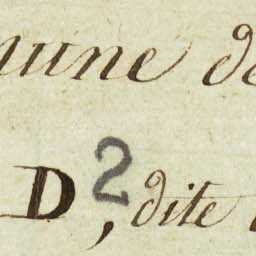 mune de
D 2, dite